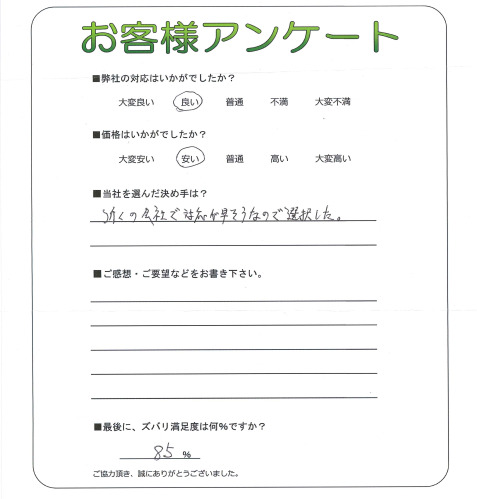 お客様アンケート
■弊社の対応はいかがでしたか？
大変良い 良い 普通 不満 大変不満
■価格はいかがでしたか？
大変安い 安い 普通 高い 大変高い
■当社を選んだ決め手は？
近くの会社で対応が早そうなので選択した。
■ご感想・ご要望などをお書き下さい。
■最後に、ズバリ満足度は何％ですか？
85 %
ご協力頂き、誠にありがとうございました。